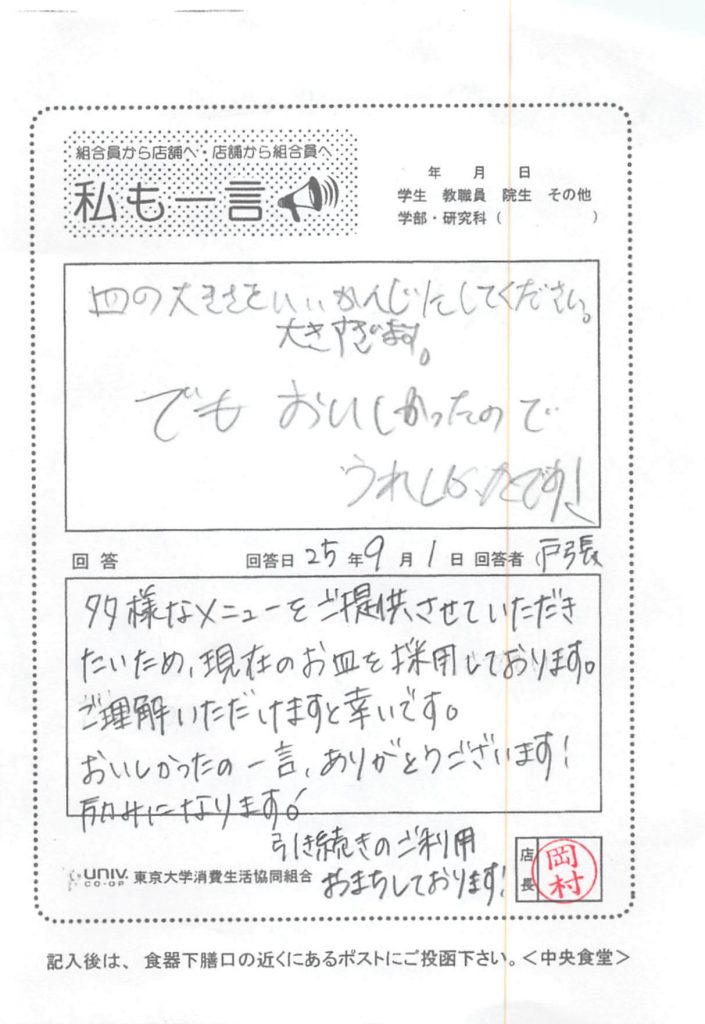 組合員から店舗へ・店舗から組合員へ
私も一言
年 月 日
学生 教職員 院生 その他
学部・研究科 ( )
皿の大きさをいいかんじにしてください。
大きすぎます。
でも おいしかったので
うれしかったです!
回答 回答日 25年9月1日 回答者(戸張
多様なメニューをご提供させていただき
たいため、現在のお皿を採用しております。
ご理解いただけますと幸いです。
おいしかったの一言、ありがとうございます!
励みになります!
引き続きのご利用
おまちしております!
UNIV. CO-OP 東京大学消費生活協同組合
店長 岡村
記入後は、食器下膳口の近くにあるポストにご投函下さい。<中央食堂>